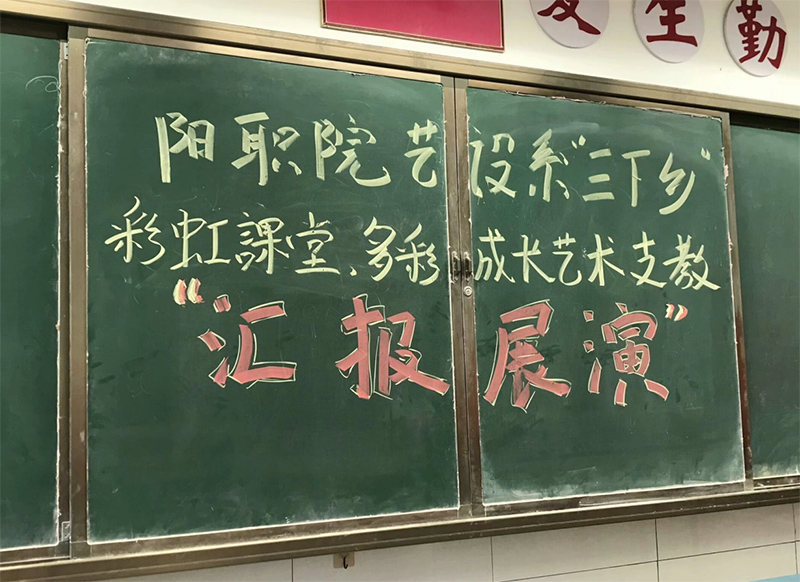 生勤
阳职院艺设系"三下乡"
彩虹課堂、多彩成长艺术支教
"汇报展演"